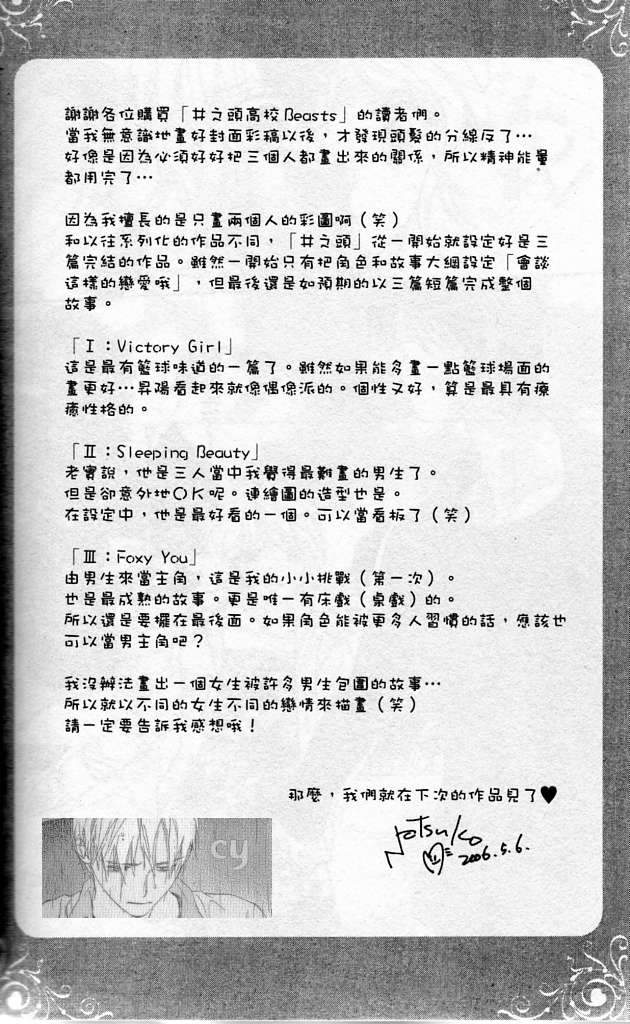 謝謝各位購買「井之頭高校Beasts」的讀者們。
當我無意識地畫好封面彩稿以後，才發現頭髮的分線反了…
好像是因為必須好好把三個人都畫出來的關係，所以精神能量
都用完了…
因為我擅長的是只畫兩個人的彩圖啊（笑）
和以往系列化的作品不同，「井之頭」從一開始就設定好是三
篇完結的作品。雖然一開始只有把角色和故事大綱設定「會談
這樣的戀愛哦」，但最後還是如預期的以三篇短篇完成整個
故事。
「Ⅰ：Victory Girl」
這是最有籃球味道的一篇了。雖然如果能多畫一點籃球場面的
畫更好…昇陽看起來就像偶像派的。個性又好，算是最具有療
癒性格的。
「Ⅱ：Sleeping Beauty」
老實說，他是三人當中我覺得最難畫的男生了。
但是卻意外地ＯＫ呢。連繪圖的造型也是。
在設定中，他是最好看的一個。可以當看板了（笑）
「Ⅲ：Foxy You」
由男生來當主角，這是我的小小挑戰（第一次）。
也是最成熟的故事。更是唯一有床戲（桌戲）的。
所以還是要擺在最後面。如果角色能被更多人習慣的話，應該也
可以當男主角吧？
我沒辦法畫出一個女生被許多男生包圍的故事…
所以就以不同的女生不同的戀情來描畫（笑）
請一定要告訴我感想哦！
那麼，我們就在下次的作品見了♥
2006.5.6.
cy